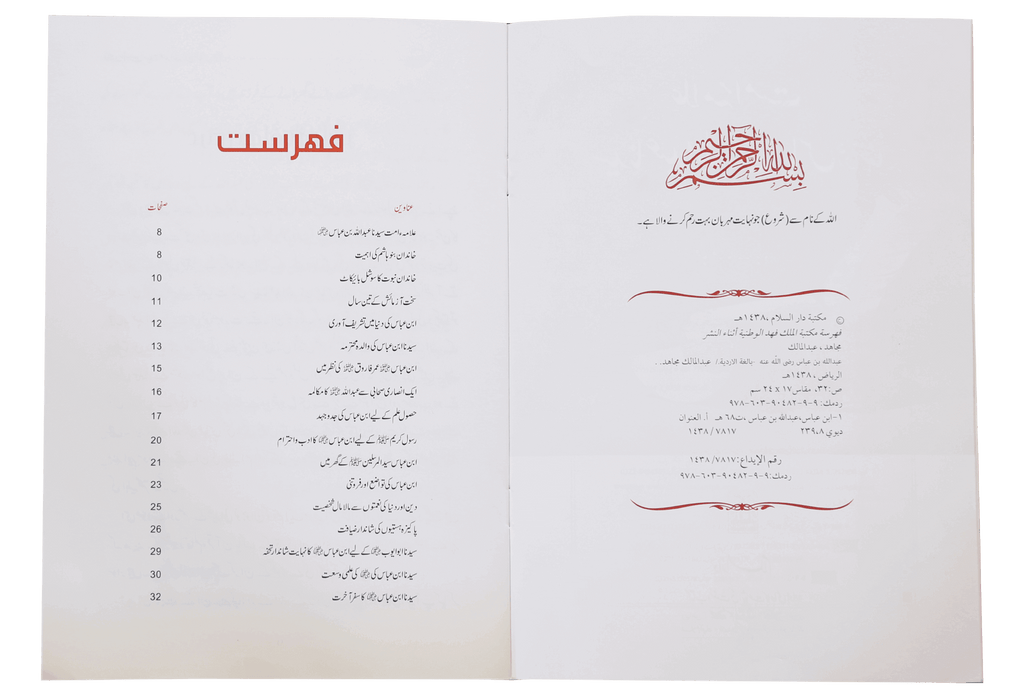 بسم الله الرحمن الرحيم
اللہ کے نام سے (شروع) جو نہایت مہربان بہت رحم کرنے والا ہے۔
© مكتبة دار السلام ،١٤٣٨هـ
فهرسة مكتبة الملك فهد الوطنية أثناء النشر
مجاهد، عبدالمالك
عبدالله بن عباس رضی الله عنه - بالغة الاردية./ عبدالمالك مجاهد..
الرياض ،١٤٣٨هـ
ص:٣٢، مقاس١٧ X ٢٤ سم
ردمك: ٩-٩-٩٠٤٨٢-٦٠٣-٩٧٨
١- ابن عباس،عبدالله بن عباس ،ت٦٨ هـ أ. العنوان
ديوي ٢٣٩،٨ ١٤٣٨/٧٨١٧
رقم الإيداع:١٤٣٨/٧٨١٧
ردمك:٩-٩-٩٠٤٨٢-٦٠٣-٩٧٨
فهرست
عناوین صفحات
علامہء امت سیدنا عبداللہ بن عباس رضی اللہ عنہما 8
خاندان بنو ہاشم کی اہمیت 8
خاندان نبوت کا سوشل بائیکاٹ 10
سخت آزمائش کے تین سال 11
ابن عباس کی دنیا میں تشریف آوری 12
سیدنا ابن عباس کی والدہ محترمہ 13
ابن عباس رضی اللہ عنہما عمر فاروق رضی اللہ عنہ کی نظر میں 15
ایک انصاری صحابی سے عبداللہ رضی اللہ عنہ کا مکالمہ 16
حصول علم کے لیے ابن عباس کی جدوجہد 17
رسول کریم ﷺ کے لیے ابن عباس رضی اللہ عنہما کا ادب و احترام 20
ابن عباس سید المرسلین ﷺ کے گھر میں 21
ابن عباس کی تواضع اور فروتنی 23
دین اور دنیا کی نعمتوں سے مالا مال شخصیت 25
پاکیزہ ہستیوں کی شاندار ضیافت 26
سیدنا ابو ایوب رضی اللہ عنہ کے لیے ابن عباس رضی اللہ عنہما کا نہایت شاندار تحفہ 29
سیدنا ابن عباس کی رضی اللہ عنہما کی علمی وسعت 30
سیدنا ابن عباس رضی اللہ عنہما کا سفر آخرت 32